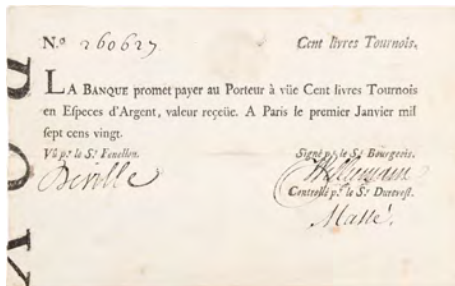 N.º 260627 Cent livres Tournois.
LA BANQUE promet payer au Porteur à vüe Cent livres Tournois
en Especes d'Argent, valeur reçeüe. A Paris le premier Janvier mil
sept cens vingt.
Vû p.r le S.r Fenellon. Signé p.r le S.r Bourgeois.
Deville
Controllé p.r le S.r Durevest.
Massé.